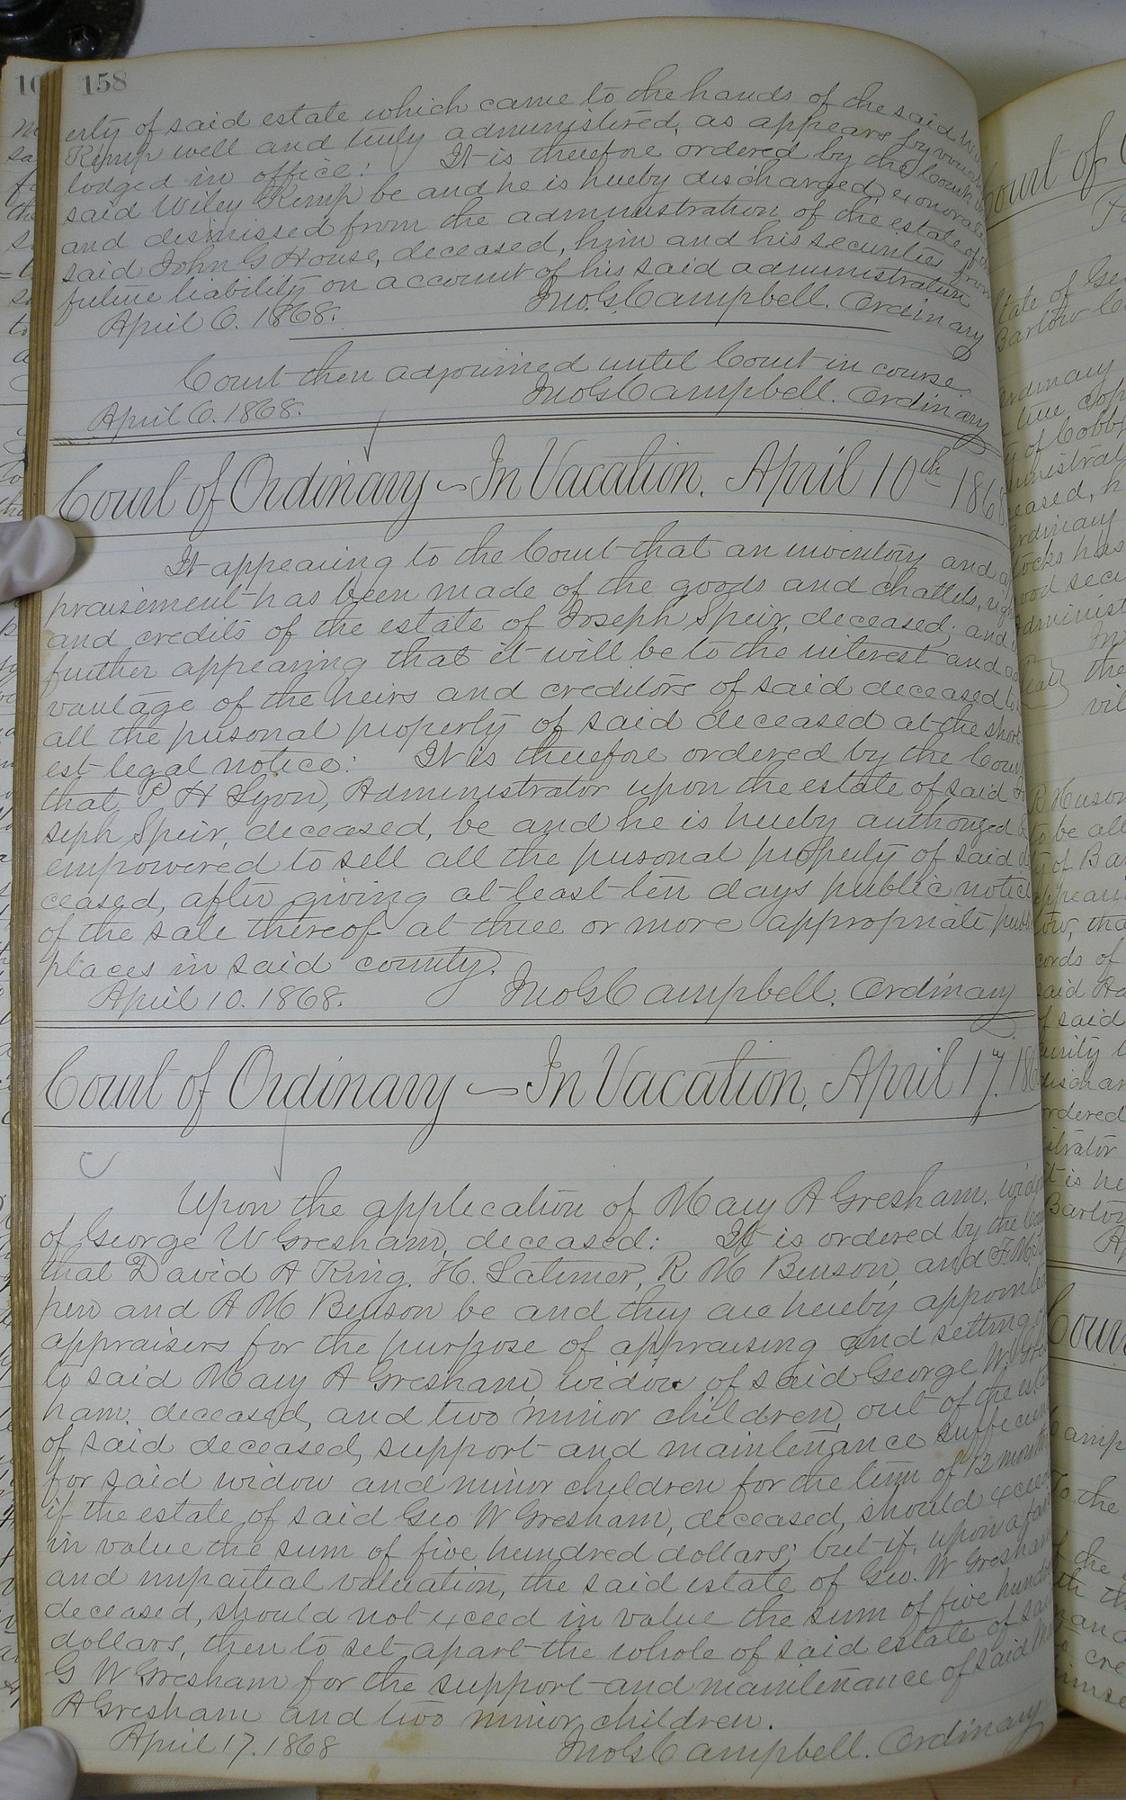 158
erty of said estate which came to the hands of the said
Kemp well and truly administered, as appears by
lodged in office: It is therefore ordered by the Court
said Wiley Kemp be and he is hereby discharged,
and dismissed from the administration of the estate of
said John G House, deceased, him and his securities from
future liability on account of his said administration
April 6. 1868. Jno. G. Campbell. Ordinary
Court then adjourned until Court in course
April 6. 1868. Jno G Campbell. Ordinary
Court of Ordinary - In Vacation, April 10th 1868
It appearing to the Court that an inventory and ap
praisement has been made of the goods and chattels,
and credits of the estate of Joseph Speir, deceased; and
further appearing that it will be to the interest and ad
vantage of the heirs and creditors of said deceased to
all the personal property of said deceased at the short
est legal notice: It is therefore ordered by the Court
that P H Lyon, Administrator upon the estate of said Jo
seph Speir, deceased, be and he is hereby authorized
empowered to sell all the personal property of said de
ceased, after giving at least ten days public notice
of the sale thereof at three or more appropriate
places in said county.
April 10. 1868. Jno G Campbell. Ordinary
Court of Ordinary - In Vacation, April 17. 186
Upon the application of Mary A Gresham, widow
of George W Gresham, deceased: It is ordered by the Court
that David A King, H. Latimer, R M Benson, and F. M.
pen and A M Benson be and they are hereby appointed
appraisers for the purpose of appraising and setting
to said Mary A Gresham, widow of said George W. Gres
ham, deceased, and two minor children, out of the estate
of said deceased, support and maintenance sufficient
for said widow and minor children for the time of 12 months
if the estate of said Geo W Gresham, deceased, should exceed
in value the sum of five hundred dollars; but if, upon a fair
and impartial valuation, the said estate of Geo. W Gresham
deceased, should not exceed in value the sum of five hundred
dollars, then to set apart the whole of said estate of said
G W Gresham for the support and maintenance of said
A Gresham and two minor children.
April 17. 1868 Jno G Campbell. Ordinary